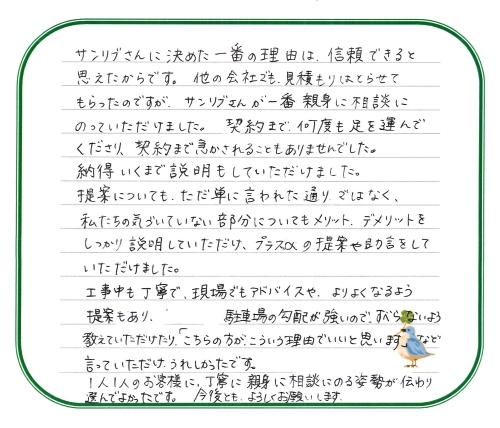 サンリブさんに決めた一番の理由は、信頼できると
思えたからです。 他の会社でも、見積もりはとらせて
もらったのですが、サンリブさんが一番親身に相談に
のっていただけました。 契約まで、何度も足を運んで
くださり、契約まで急かされることもありませんでした。
納得いくまで説明もしていただけました。
提案についても、ただ単に言われた通りではなく、
私たちの気づいていない部分についてもメリット、デメリットを
しっかり説明していただけ、プラスαの提案や助言をして
いただけました。
工事中も丁寧で、現場でもアドバイスや、よりよくなるよう
提案もあり、 駐車場の勾配が強いので、すべらないよう
教えていただけたり、「こちらの方が、こういう理由でいいと思います」など
言っていただけ、うれしかったです。
1人1人のお客様に、丁寧に親身に相談にのる姿勢が伝わり
選んでよかったです。 今後とも、よろしくお願いします。